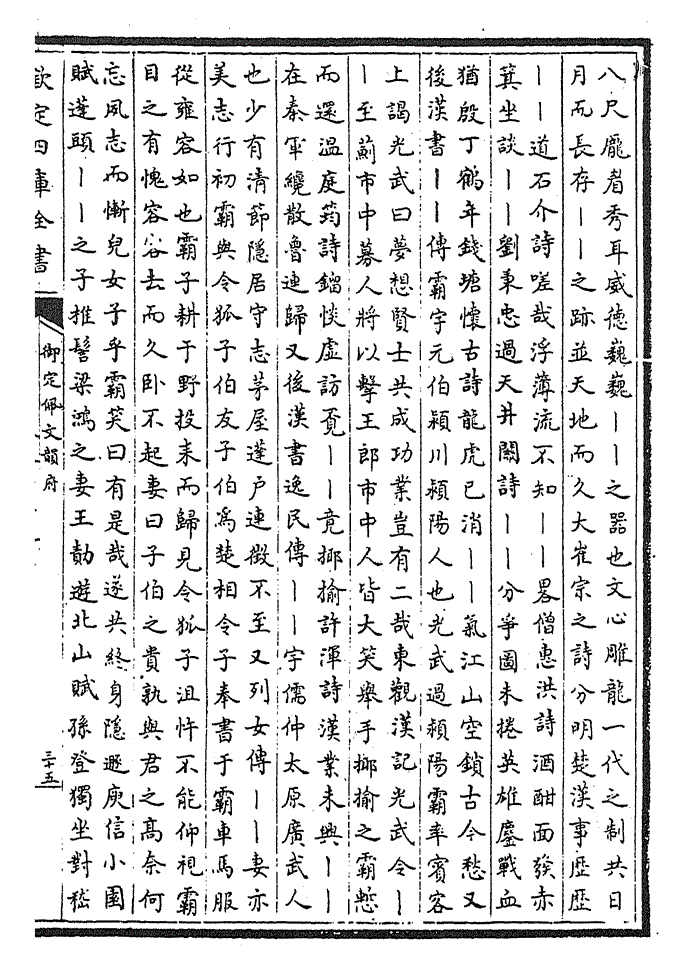 八尺龎眉秀耳威德巍巍丨丨之器也文心雕龍一代之制共日
月而長存丨丨之跡並天地而久大崔宗之詩分明楚漢事歴歴
丨丨道石介詩嗟哉浮薄流不知丨丨畧僧惠洪詩酒酣面發赤
箕坐談丨丨劉秉忠過天井關詩丨丨分爭圖未捲英雄鏖戰血
猶殷丁鶴年錢塘懷古詩龍虎已消丨丨氣江山空鎖古今愁又
後漢書丨丨傳霸字元伯頴川頴陽人也光武過頴陽霸率賓客
上謁光武曰夢想賢士共成功業豈有二哉東觀漢記光武令丨
丨至薊市中募人將以擊王郎市中人皆大笑舉手揶揄之霸慙
而還温庭筠詩鎦惔虛訪覓丨丨竟揶揄許渾詩漢業未興丨丨
在秦軍纔散魯連歸又後漢書逸民傳丨丨字儒仲太原廣武人
也少有清節隱居守志茅屋蓬户連徴不至又列女傳丨丨妻亦
美志行初霸與令狐子伯友子伯爲楚相令子奉書于霸車馬服
從雍容如也霸子耕于野投耒而歸見令狐子沮怍不能仰視霸
目之有愧容客去而久卧不起妻曰子伯之貴孰與君之髙奈何
忘夙志而慚兒女子乎霸笑曰有是哉遂共終身隱遯庾信小園
賦蓬頭丨丨之子推髻梁鴻之妻王勣遊北山賦孫登獨坐對嵇
欽定四庫全書
御定佩文韻府
三十五